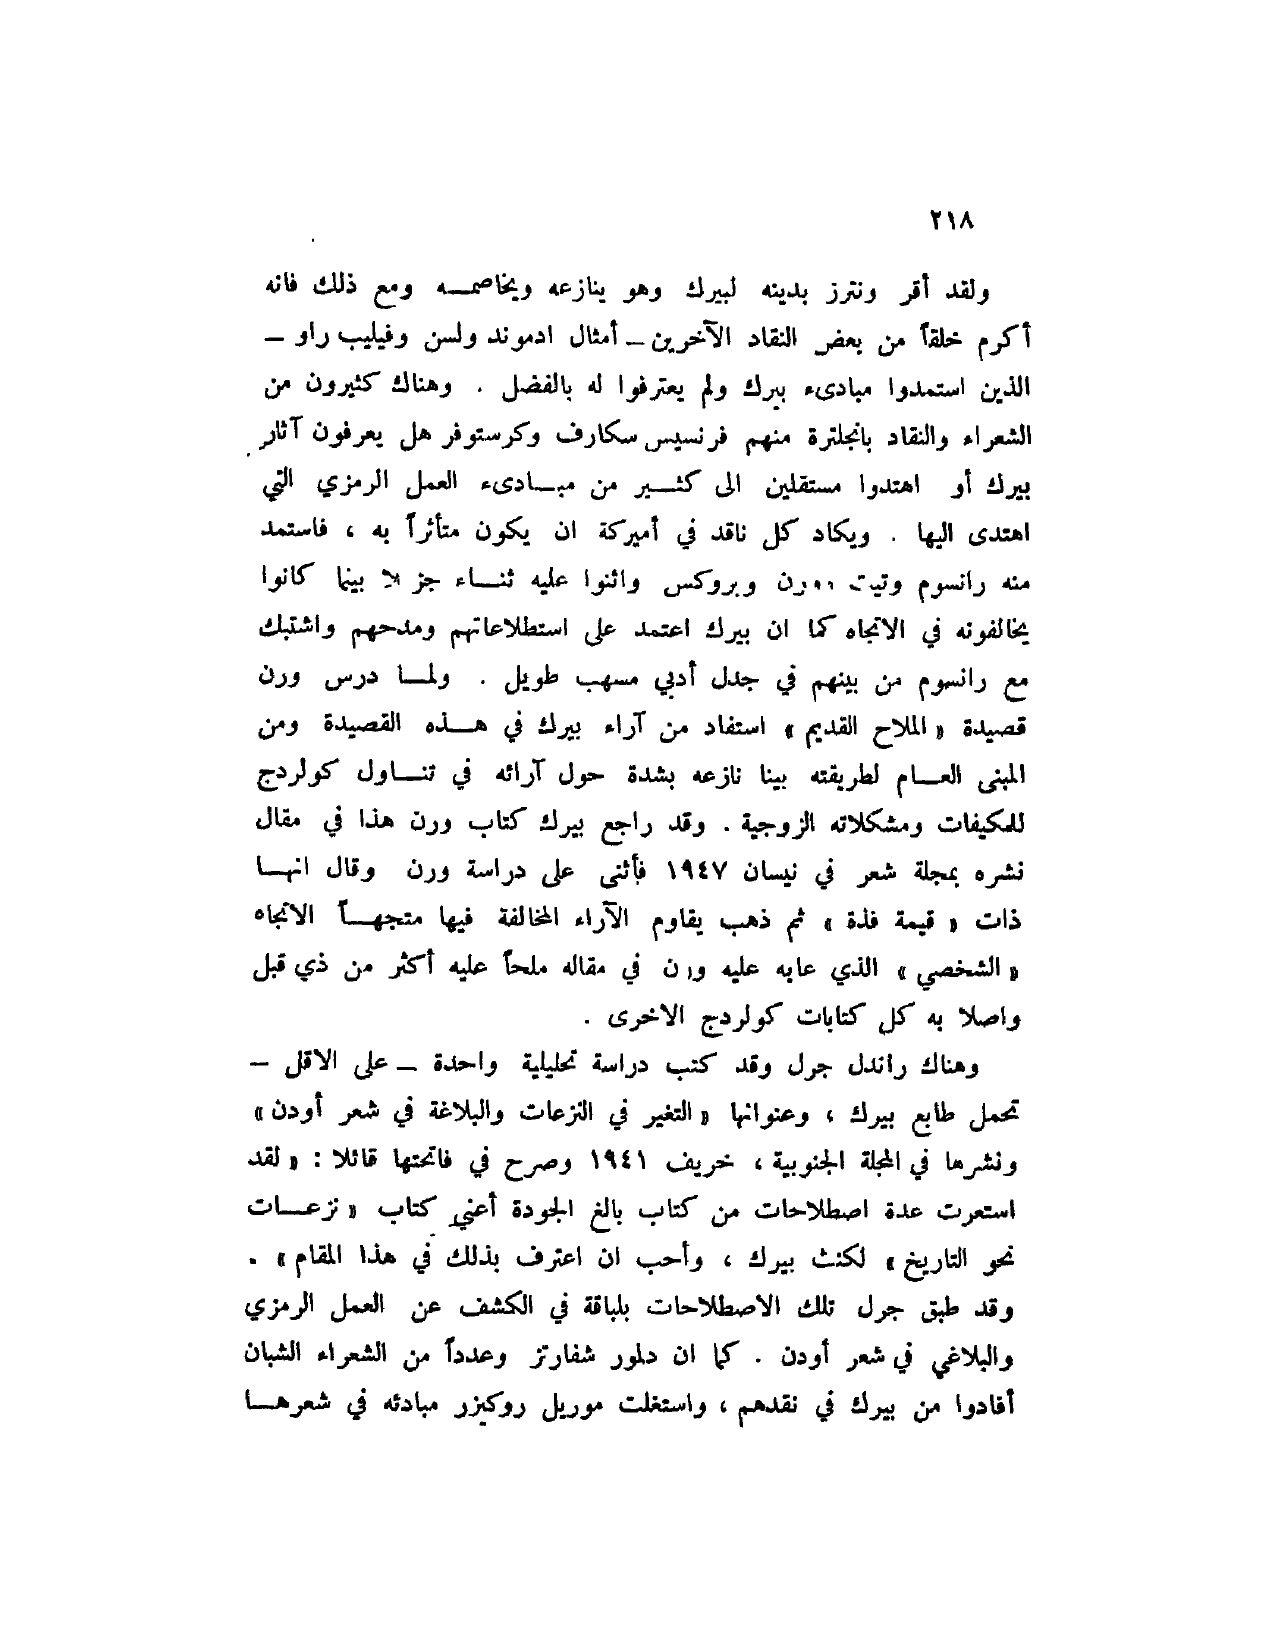 ٢١٨
ولقد أقر ونترز بدينه لبيرك وهو ينازعه ويخاصمـــه ومع ذلك فانه
أكرم خلقاً من بعض النقاد الآخرين – أمثال ادموند ولسن وفيليب راو –
الذين استمدوا مبادىء بيرك ولم يعترفوا له بالفضل . وهناك كثيرون من
الشعراء والنقاد بانجلترة منهم فرنسيس سكارف وكرستوفر هل يعرفون آثار
بيرك أو اهتدوا مستقلين الى كثـــير من مبـــادىء العمل الرمزي التي
اهتدى اليها . ويكاد كل ناقد في أميركة ان يكون متأثراً به ، فاستمد
منه رانسوم وتيت وورن وبروكس واثنوا عليه ثنـــاء جزلا بينما كانوا
يخالفونه في الاتجاه كما ان بيرك اعتمد على استطلاعاتهم ومدحهم واشتبك
مع رانسوم من بينهم في جدل أدبي مسهب طويل . ولمـــا درس ورن
قصيدة « الملاح القديم » استفاد من آراء بيرك في هـــذه القصيدة ومن
المبنى العـــام لطريقته بينا نازعه بشدة حول آرائه في تنـــاول كولردج
للمكيفات ومشكلاته الزوجية . وقد راجع بيرك كتاب ورن هذا في مقال
نشره بمجلة شعر في نيسان ١٩٤٧ فأثنى على دراسة ورن وقال انهـــا
ذات « قيمة فذة » ثم ذهب يقاوم الآراء المخالفة فيها متجهـــاً الاتجاه
« الشخصي » الذي عابه عليه ورن في مقاله ملحاً عليه أكثر من ذي قبل
واصلا به كل كتابات كولردج الاخرى .
وهناك راندل جرل وقد كتب دراسة تحليلية واحدة – على الاقل –
تحمل طابع بيرك ، وعنوانها « التغير في النزعات والبلاغة في شعر أودن »
ونشرها في المجلة الجنوبية ، خريف ١٩٤١ وصرح في فاتحتها قائلا : « لقد
استعرت عدة اصطلاحات من كتاب بالغ الجودة أعني كتاب « نزعـــات
نحو التاريخ » لكنث بيرك ، وأحب ان اعترف بذلك في هذا المقام » .
وقد طبق جرل تلك الاصطلاحات بلباقة في الكشف عن العمل الرمزي
والبلاغي في شعر أودن . كما ان دلمور شفارتز وعدداً من الشعراء الشبان
أفادوا من بيرك في نقدهم ، واستغلت موريل روكيزر مبادئه في شعرهـــا